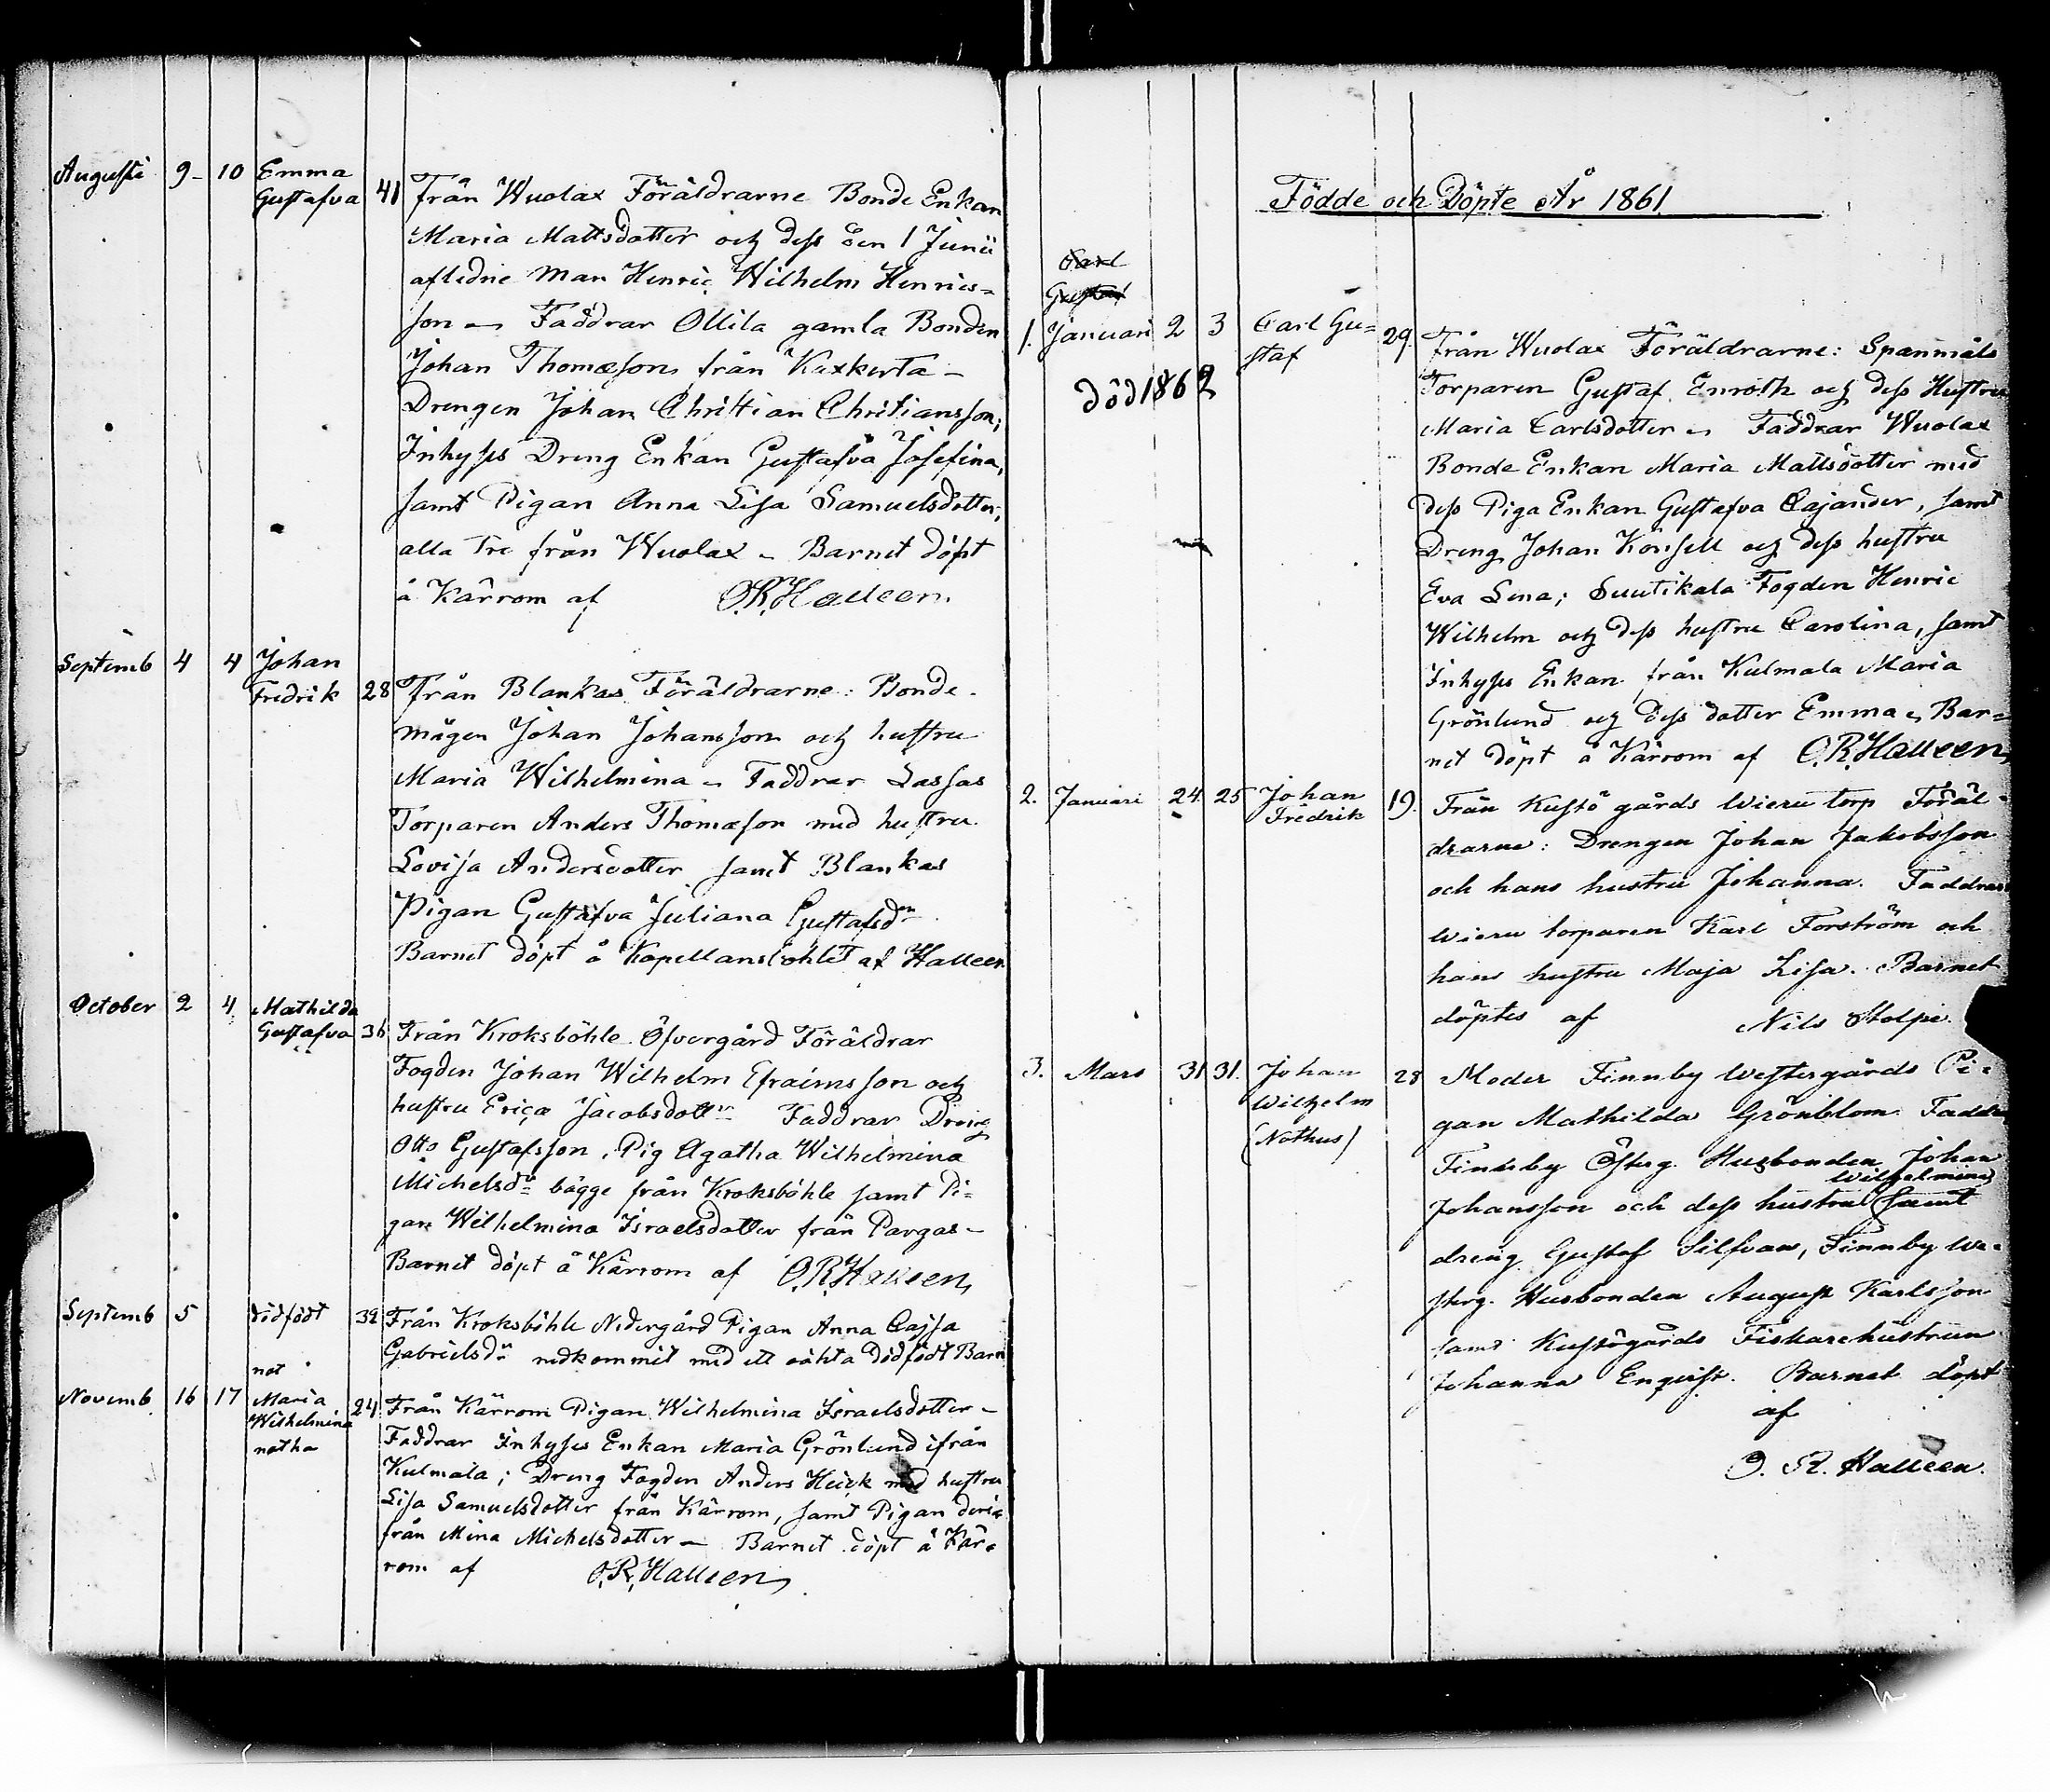 Augusti 9 - 10 Emma
Gustafva 41 Från Wuolax Föräldrarne Bonde Enkan
Maria Mattsdotter och dess den 1 Junii
afledne Man Henric Wilhelm Henrics=
son – Faddrar Ollila gamla Bonden
Johan Thomæson från Kaxkerta –
Drengen Johan Christian Christiansson,
Inhyses Dreng Enkan Gustafva Josefina,
samt Pigan Anna Lisa Samuelsdotter,
alla Tre från Wuolax – Barnet döpt
å Kärrom af O.R. Halleen
Septemb 4 4 Johan
Fredrik 28 Från Blankas Föräldrarne: Bonde-
mågen Johan Johansson och hustru
Maria Wilhelmina – Faddrar Lassas
Torparen Anders Thomæson med hustru
Lovisa Andersdotter samt Blankas
Pigan Gustafva Juliana Gustafsdr
Barnet döpt å Kapellansbohlet af Halleen
October 2 4 Mathilda
Gustafva 36 Från Kroksböhle Öfvergård Föräldrar
Fogden Johan Wilhelm Efraimsson och
hustru Erica Jacobsdottr Faddrar Dreng
Otto Gustafsson, Pig Agatha Wilhelmina
Michelsdr bägge från Kroksböhle samt Pi=
gan Wilhelmina Israelsdotter från Pargas –
Barnet döpt å Kärrom af O.R. Halleen
Septemb 5 dödfödt 32 Från Kroksböhle Nedergård Pigan Anna Cajsa
Gabrielsdr nedkommit med ett oäkta dödfödt Barn
not
Novemb 16 17 Maria 24 Från Kärrom Pigan Wilhelmina Israelsdotter –
Wilhelmina
notha
Faddrar Inhyses Enkan Maria Grönlund ifrån
Kulmala; Dreng Fogden Anders Heick med hustru
Lisa Samuelsdotter från Kärrom, samt Pigan deri=
från Mina Michelsdotter – Barnet döpt å Kär=
rom af O.R. Halleen
Födde och Döpte År 1861
Carl
Gustaf
1. Januari 2 3 Carl Gu=
staf 29. Från Wuolax Föräldrarne: Spanmåls
död 1862
Torparen Gustaf Enroth och dess Hustru
Maria Carlsdotter – Faddrar Wuolax
Bonde Enkan Maria Mattsdotter med
dess Piga Enkan Gustafva Cajander, samt
Dreng Johan Könsell och dess hustru
Eva Lena; Suutikala Fogden Henric
Wilhelm och dess hustru Carolina, samt
Inhyses Enkan från Kulmala Maria
Grönlund och dess dotter Emma – Bar=
net döpt å Kärrom af O.R. Halleen
2. Januari 24. 25 Johan
Fredrik 19. Från Kustö gårds Wieru torp Föräl=
drarne: Drengen Johan Jakobsson
och hans hustru Johanna. Faddrar
Wieru torparen Karl Forström och
hans hustru Maja Lisa. Barnet
döptes af Nils Stolpe.
3. Mars 31 31. Johan
Wilhelm
(Nothus) 28 Moder Finnby Westergårds Pi=
gan Mathilda Grönblom. Faddr
Finnby Österg. Husbonden Johan
Wilhelmina
Johansson och dess hustru samt
dreng Gustaf Silfvan, Finnby We=
sterg. Husbonden August Karlsson
samt Kustögårds Fiskarehustrun
Johanna Enqvist. Barnet döpt
af
O. R. Halleen.